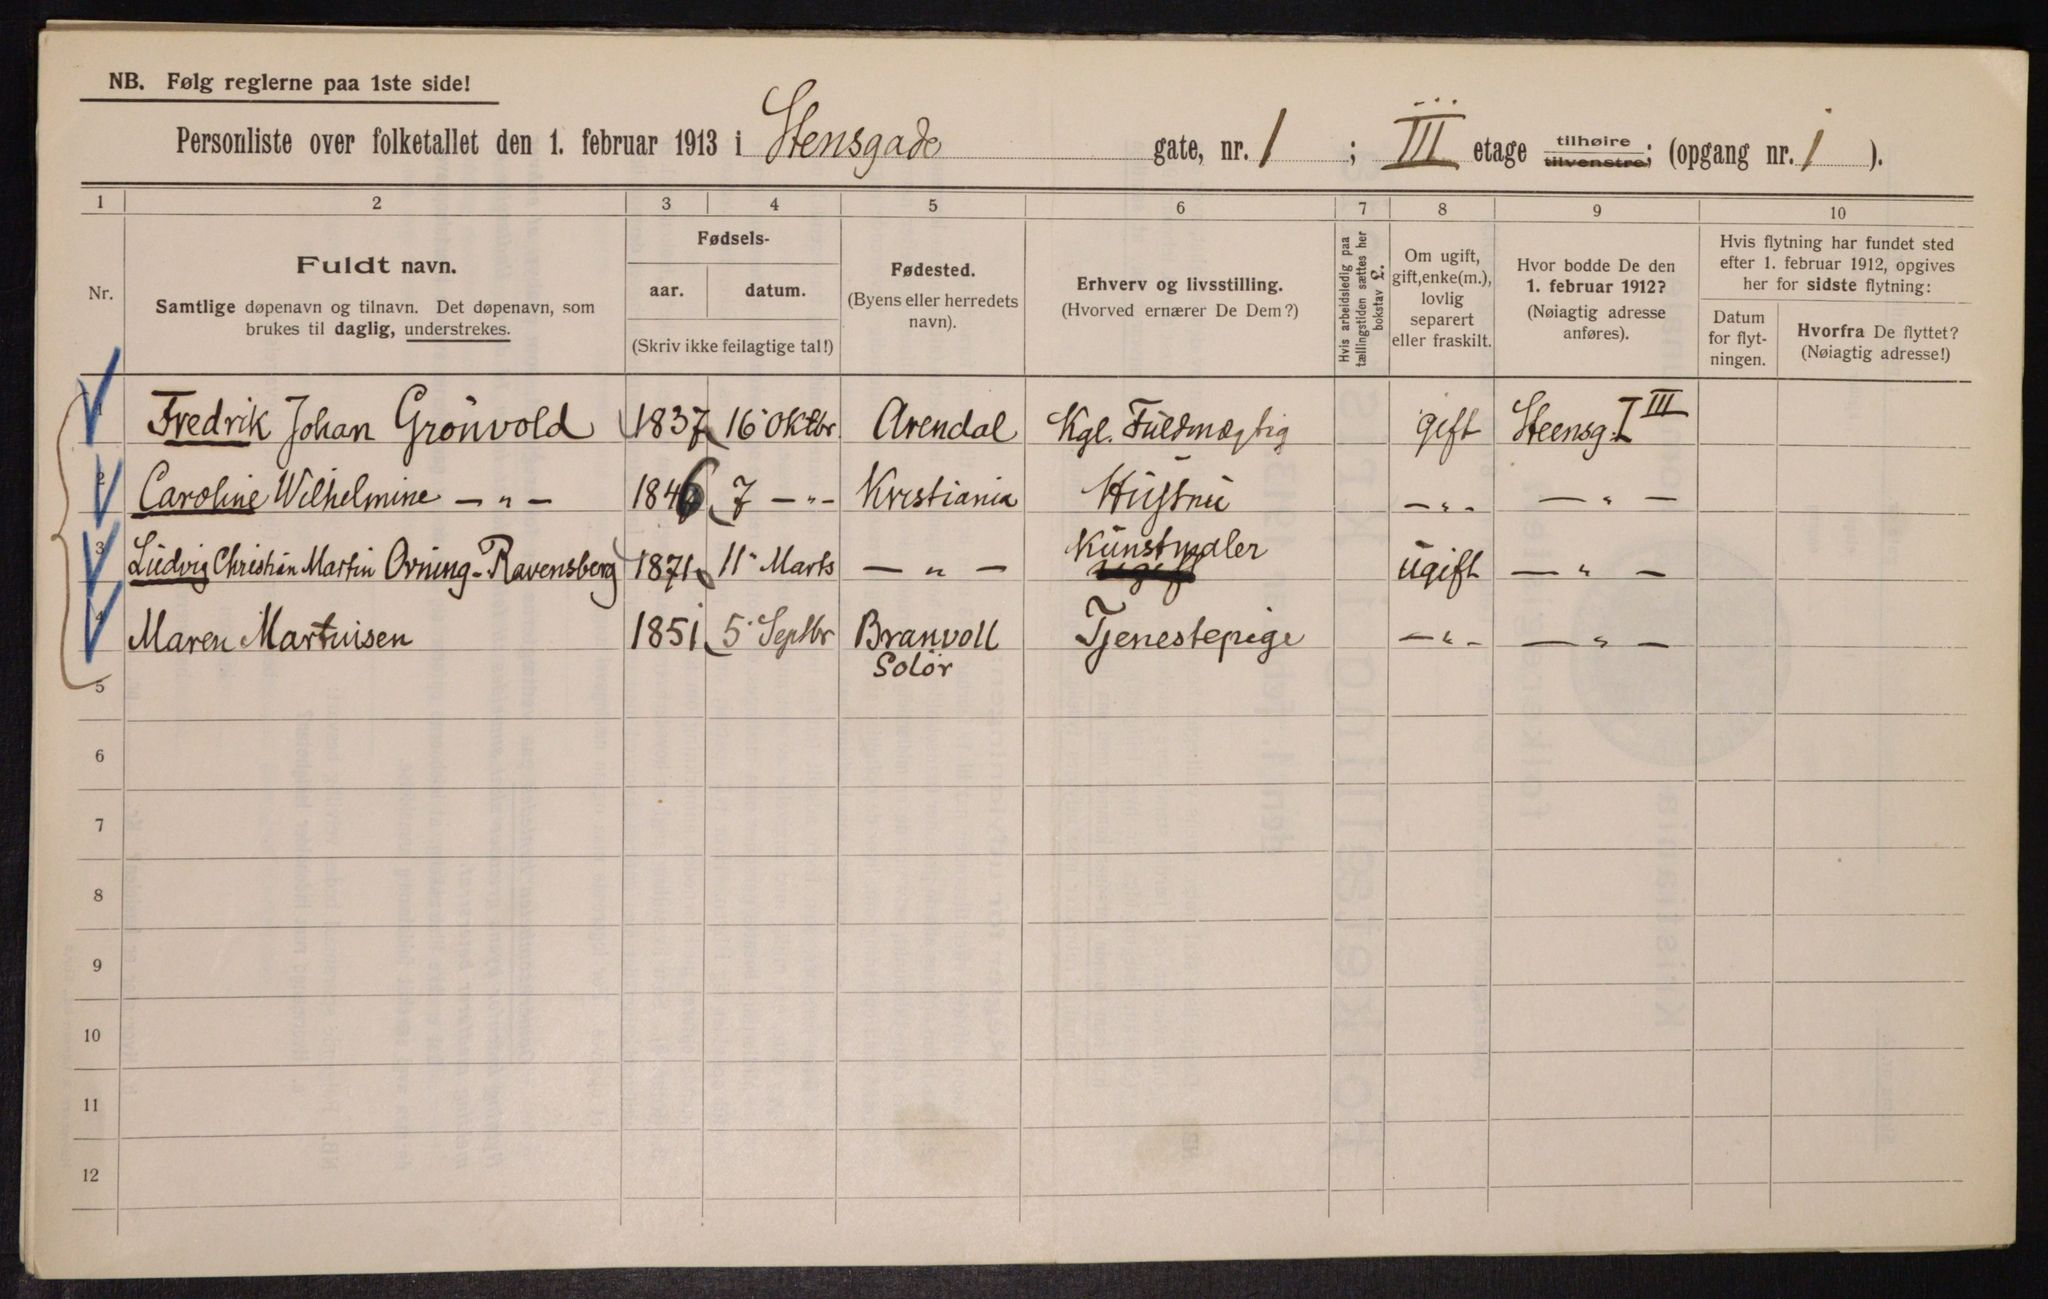 NB. Følg reglerne paa 1ste side!
Personliste over folketallet den 1. februar 1913 i Stensgade gate, nr. 1 ; III etage tilhøire tilvenstre; (opgang nr. 1 ).
1 2 3 4 5 6 7 8 9 10
Nr.
Fuldt navn.
Samtlige døpenavn og tilnavn. Det døpenavn, som
brukes til daglig, understrekes.
Fødsels-
aar. datum.
(Skriv ikke feilagtige tal!)
Fødested.
(Byens eller herredets
navn).
Erhverv og livsstilling.
(Hvorved ernærer De Dem?)
Hvis arbeidsledig paa
tællingstiden sættes her
bokstav L.
Om ugift,
gift, enke(m.),
lovlig
separert
eller fraskilt.
Hvor bodde De den
1. februar 1912?
(Nøiagtig adresse
anføres).
Hvis flytning har fundet sted
efter 1. februar 1912, opgives
her for sidste flytning:
Datum
for flyt-
ningen.
Hvorfra De flyttet?
(Nøiagtig adresse!)
1 Fredrik Johan Grönvold 1837 16 Oktbr Arendal Kgl. Fuldmægtig gift Steensg. I III
2 Caroline Wilhelmine — „ — 1846 7 — „ — Kristiania Hustru — „ — — „ —
3 Ludvig Christian Martin Orning-Ravensberg 1871 11 Marts — „ — Kunstmaler ugift ugift — „ —
4 Maren Martinsen 1851 5 Septbr Branvoll Tjenestepige — „ — — „ —
Solør
5
6
7
8
9
10
11
12